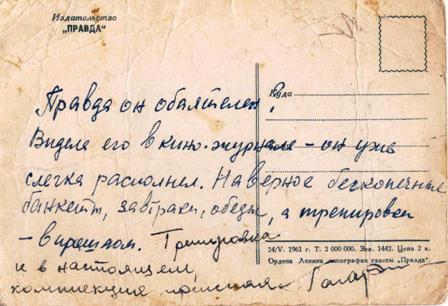 Издательство
„ПРАВДА“
Куда
Правда он обаятелен!
Видела его в кино-журнале – он уже
слегка располнел. Наверное бесконечные
банкеты, завтраки, обеды, а тренировки
– в прошлом. Тренировка
и в настоящем,
комплекция
24/V. 1961 г. Т. 2 000 000. Зак. 1442. Цена 2 к.
Ордена Ленина типография газеты „Правда“.